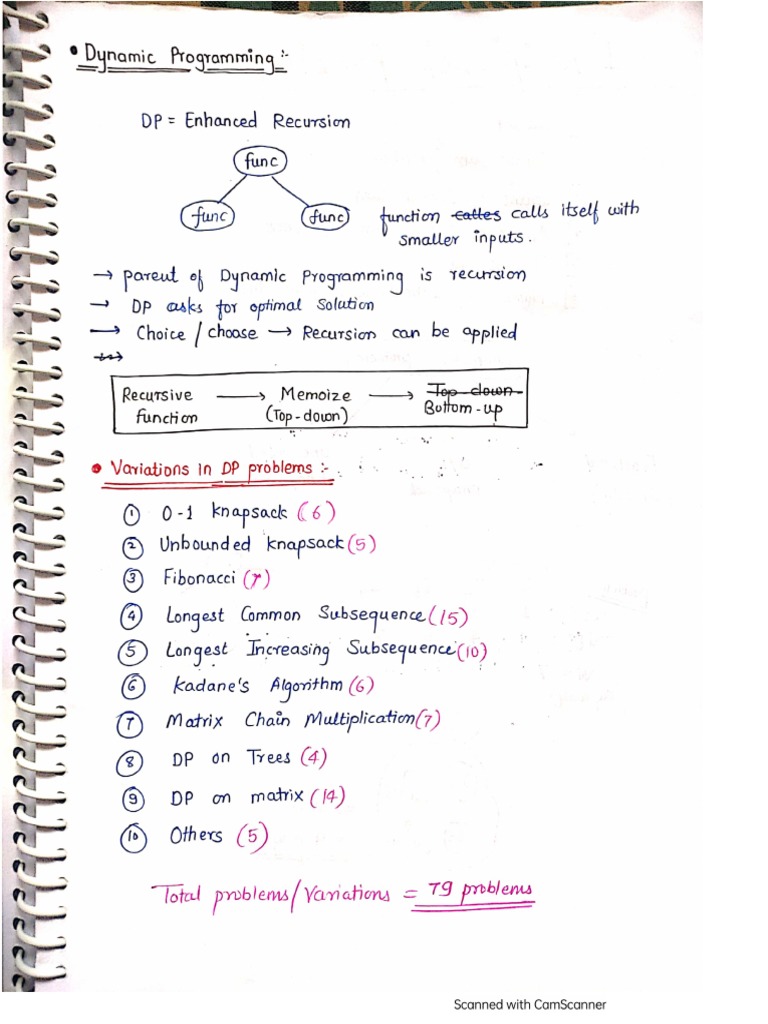 • Dynamic Programming :-
DP = Enhanced Recursion
func
func func function calles calls itself with
smaller inputs.
→ parent of Dynamic Programming is recursion
→ DP asks for optimal solution
→ Choice / choose → Recursion can be applied
Recursive → Memoize → Top-down
function (Top-down) Bottom-up
• Variations in DP problems :-
① 0-1 knapsack (6)
② Unbounded knapsack (5)
③ Fibonacci (7)
④ Longest Common Subsequence (15)
⑤ Longest Increasing Subsequence (10)
⑥ Kadane's Algorithm (6)
⑦ Matrix Chain Multiplication (7)
⑧ DP on Trees (4)
⑨ DP on matrix (14)
⑩ Others (5)
Total problems/Variations = 79 problems
Scanned with CamScanner